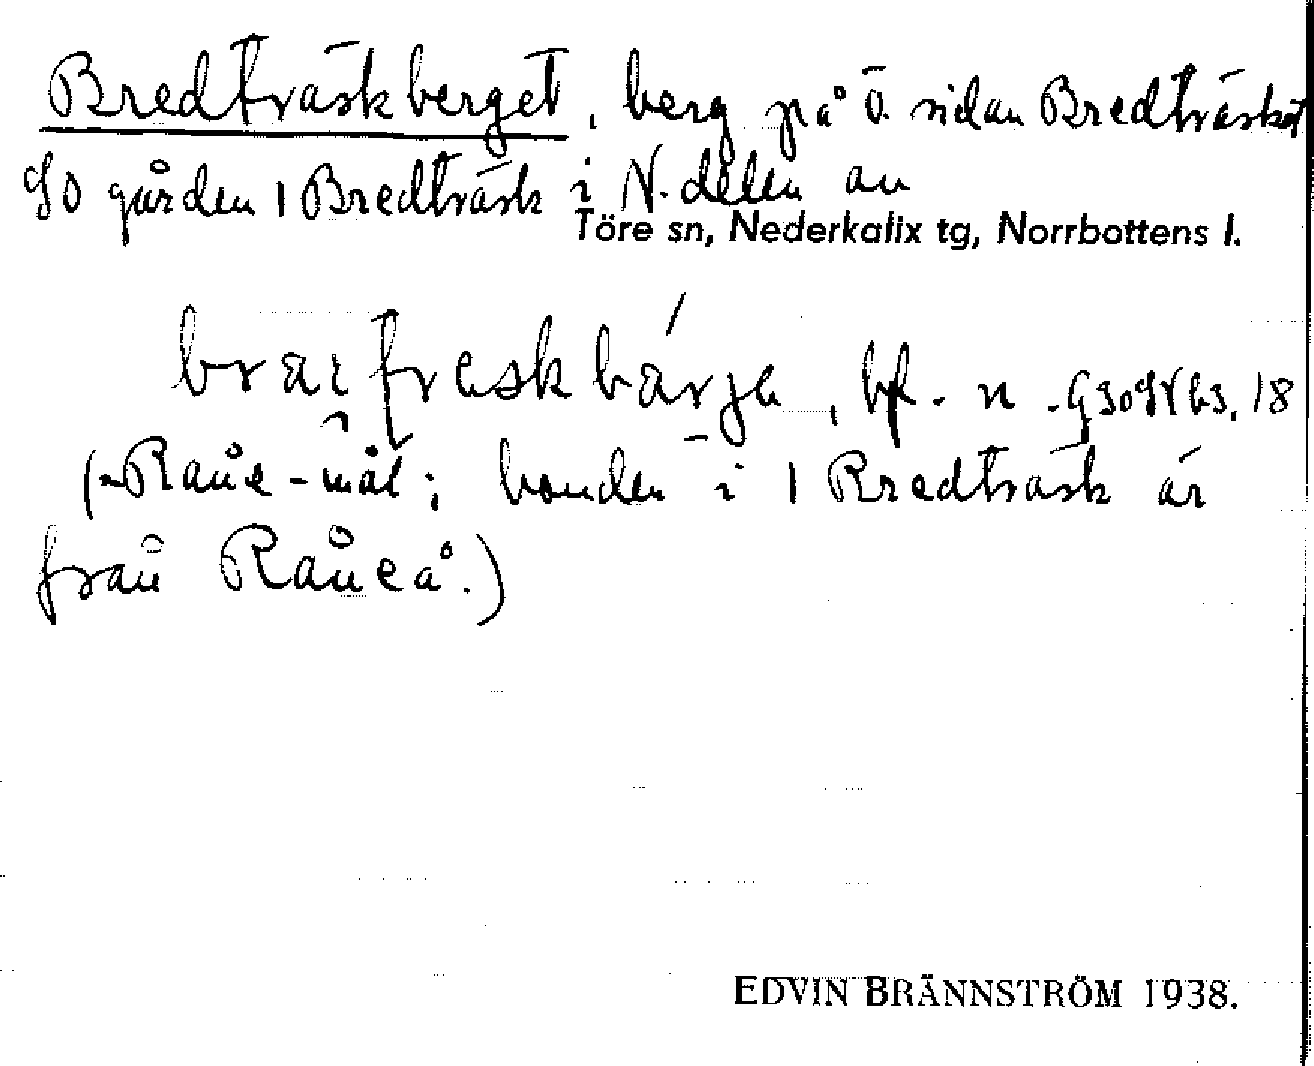 Bredträskberget, berg på Ö. sidan Bredträsket
SO gården 1 Bredträsk i N. delen av
Töre sn, Nederkalix tg, Norrbottens l.
bf. n.
(Råne-mål; bonden i 1 Bredträsk är
från Råneå.)
EDVIN BRÄNNSTRÖM 1938.